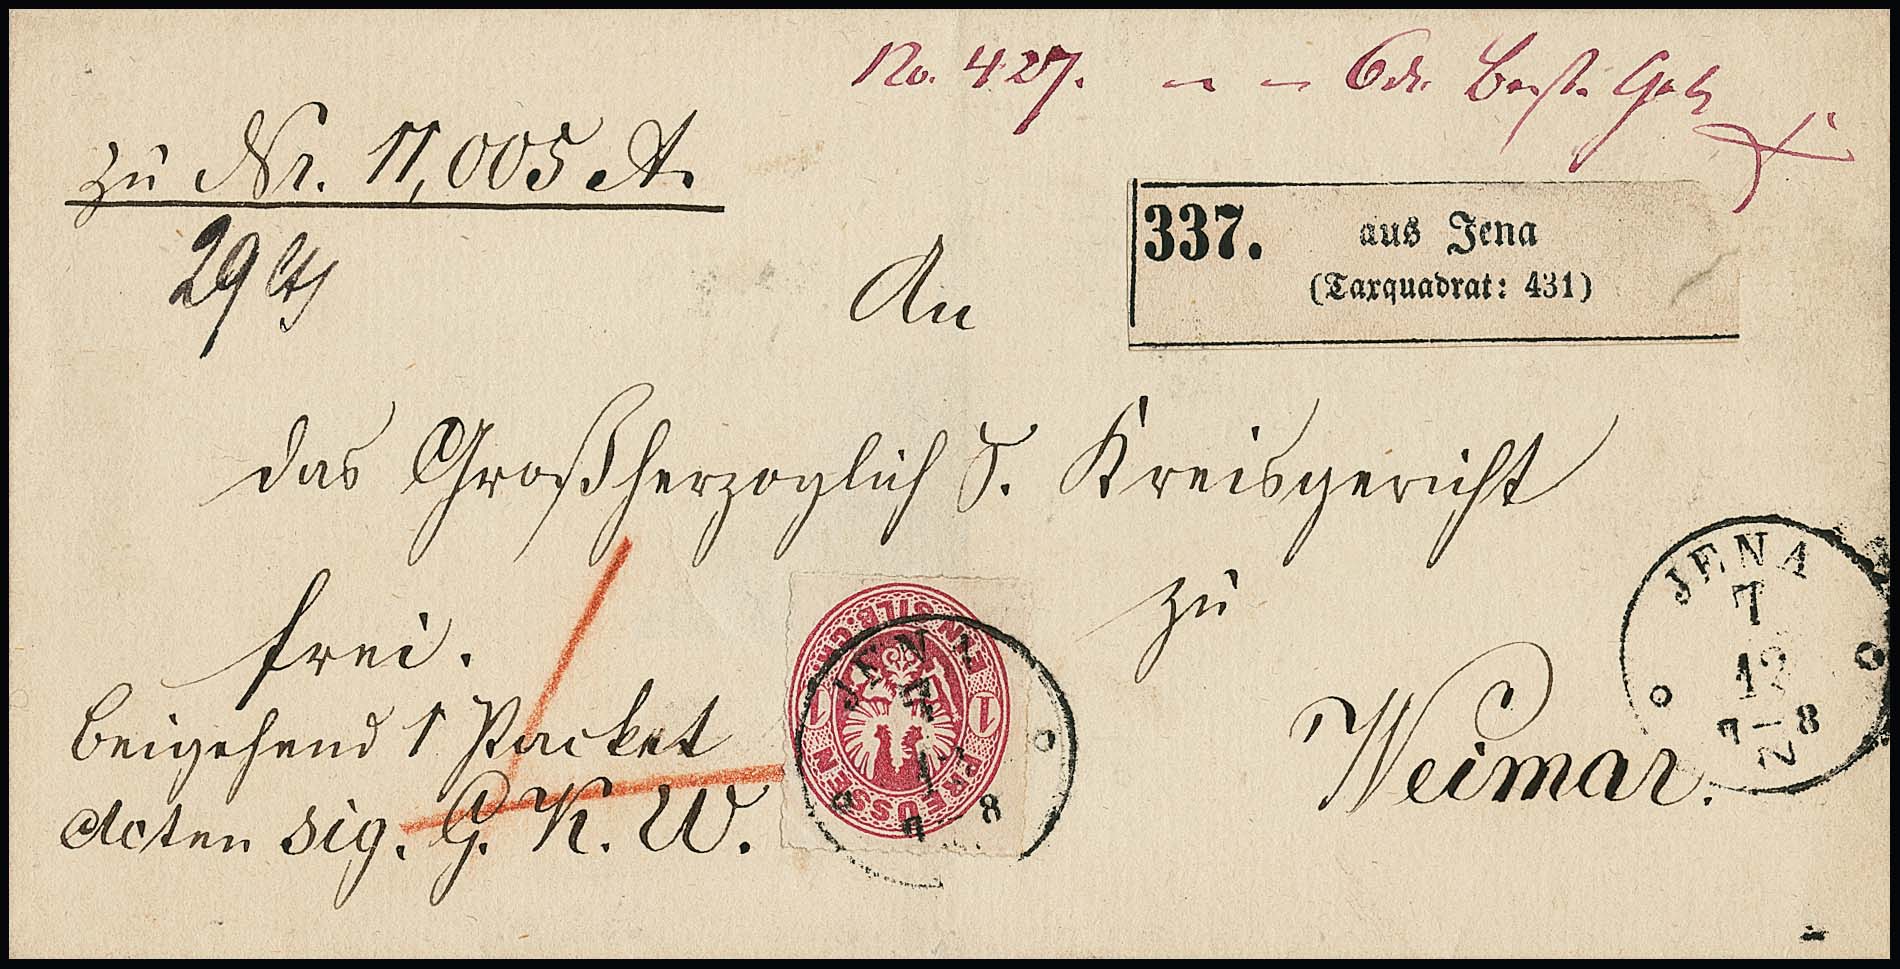 No. 427. — — 6 Best. Geld
zu Nr. 11,005 A.
29 Lth
337. aus Jena
(Taxquadrat: 431)
An
das Großherzoglich S. Kreisgericht
zu
Weimar.
frei.
beigehend 1 Packet
Acten sig. G. K. W.
EIN SILB. GR.
1 1
PREUSSEN
JENA
7
12
7–8
JENA
7
12
7–8 N